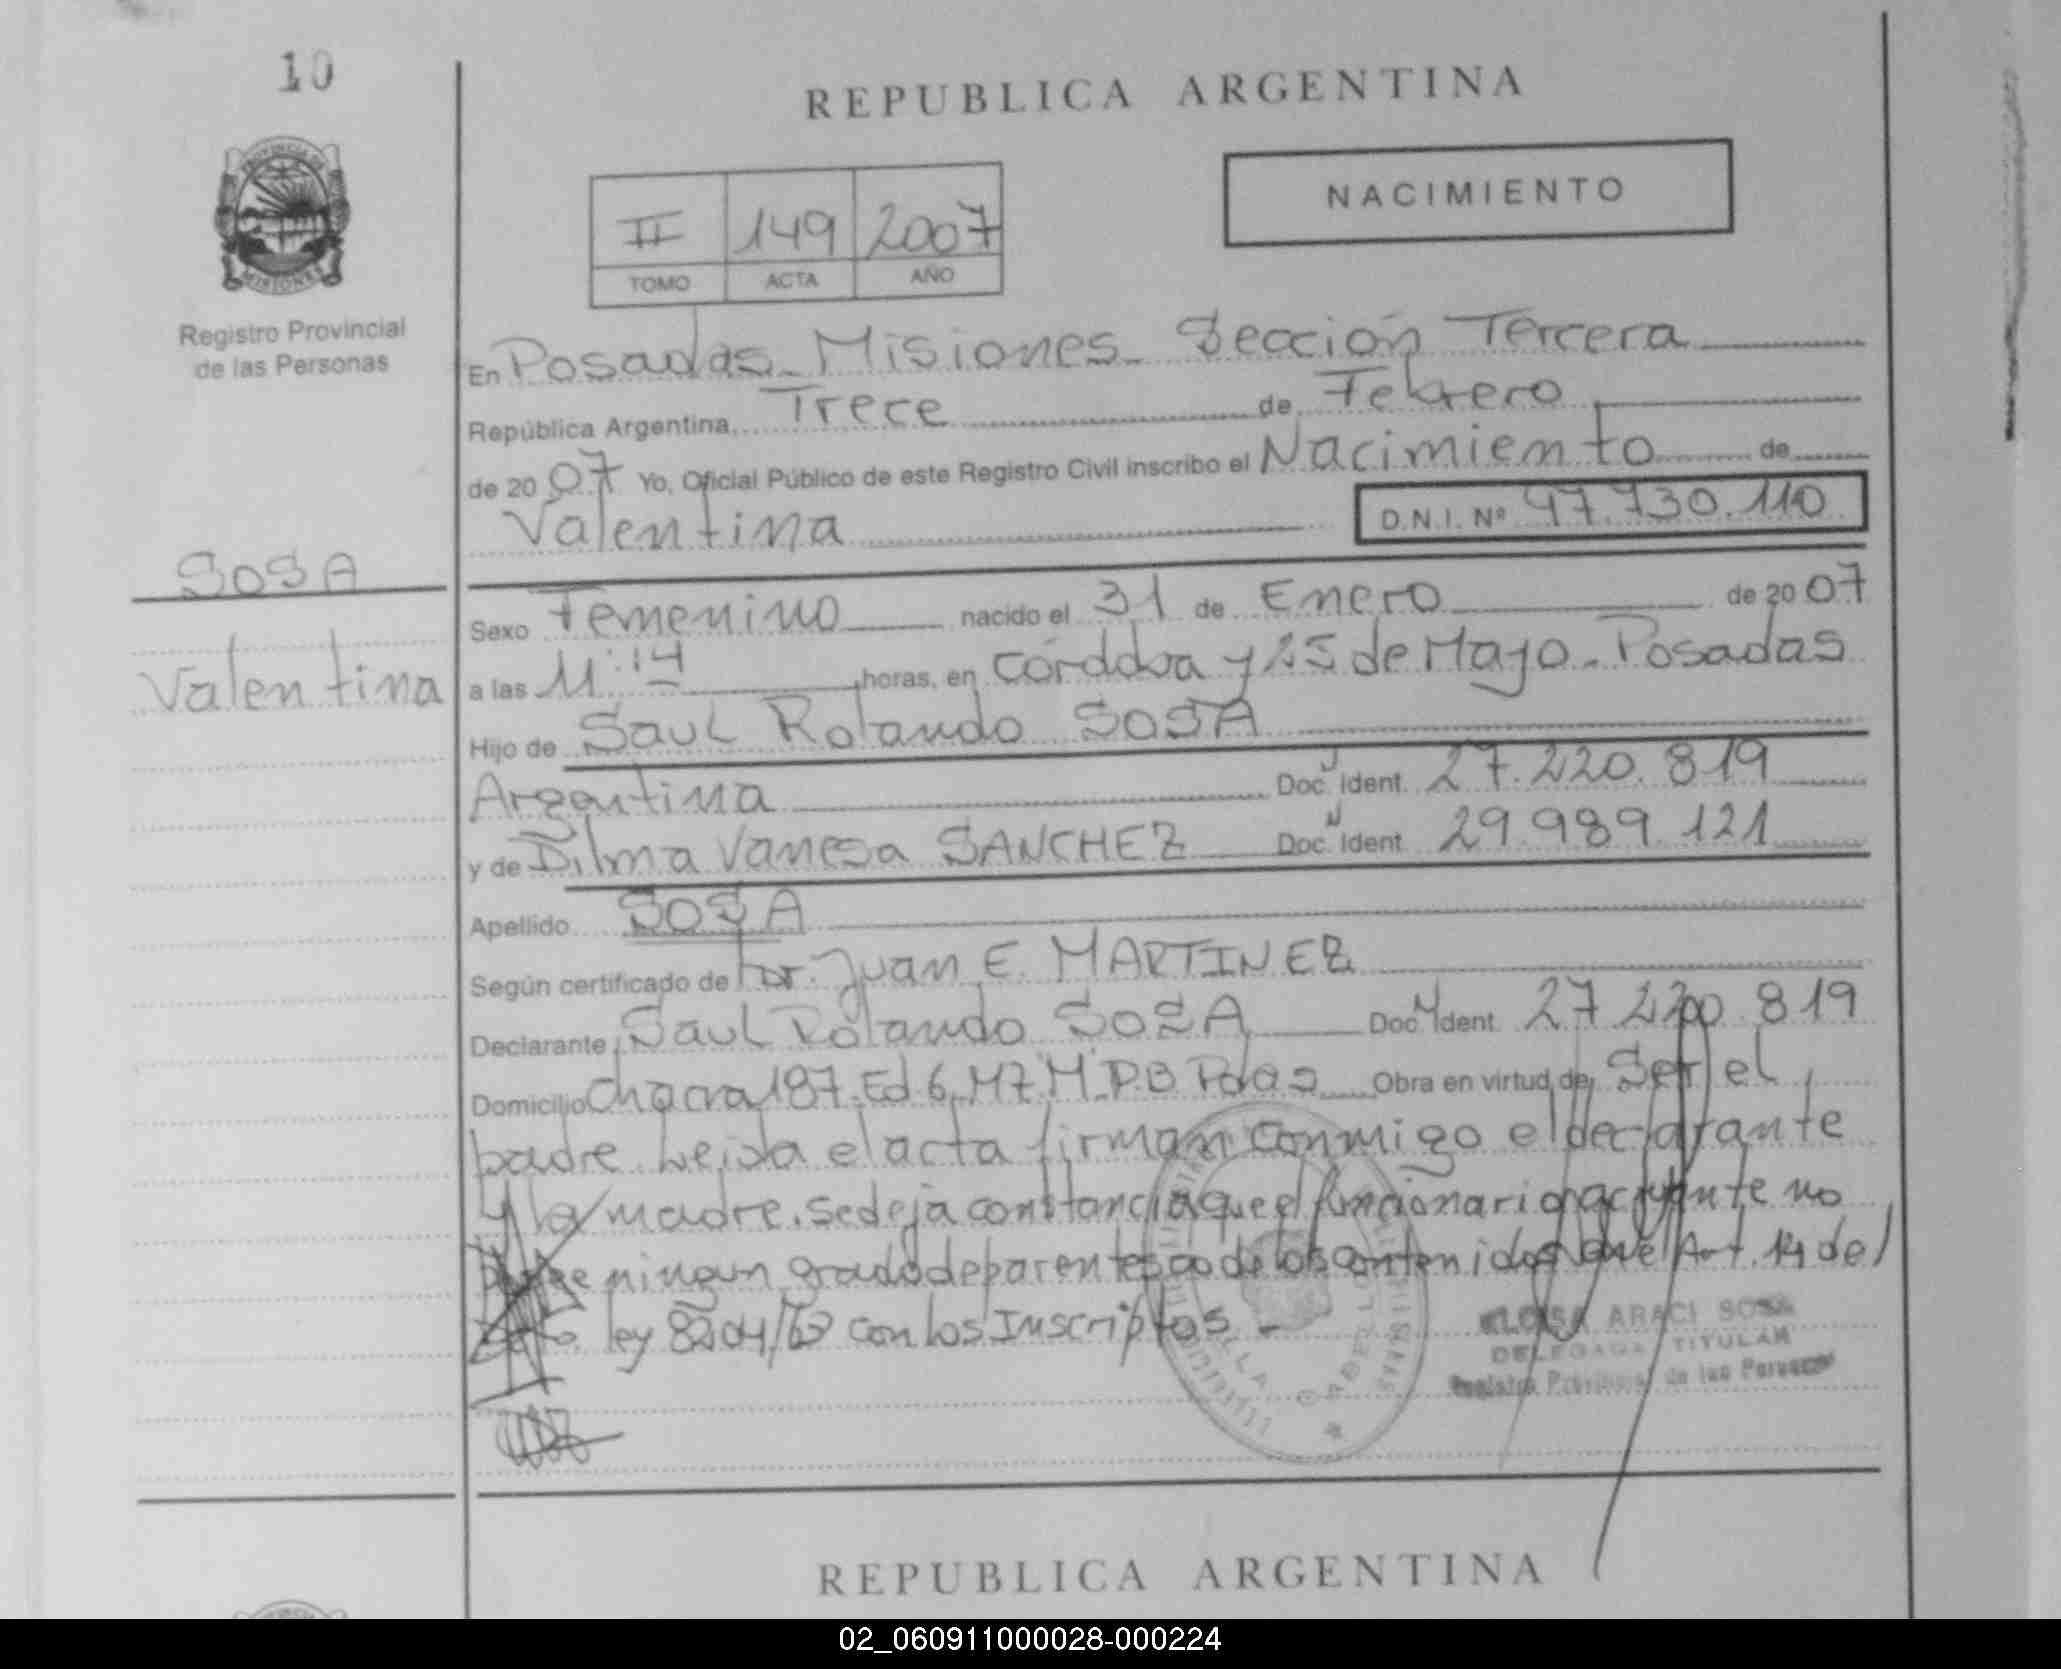 10
REPUBLICA ARGENTINA
PROVINCIA DE
MISIONES
NACIMIENTO
II 149 2007
TOMO ACTA AÑO
Registro Provincial
de las Personas
En Posadas - Misiones - Sección Tercera
República Argentina, Trece de Febrero
de 20 07 Yo, Oficial Público de este Registro Civil inscribo el Nacimiento de
Valentina D.N.I. Nº 47.730.110
SOSA
Valentina
Sexo Femenino nacido el 31 de Enero de 20 07
a las 11:14 horas, en Córdoba y 25 de Mayo - Posadas
Hijo de Saul Rolando SOSA
Argentina Doc. Ident. 27.220.819
y de Dilma Vanesa SANCHEZ Doc. Ident. 29.989.121
Apellido SOSA
Según certificado de Dr. Juan E. MARTINEZ
Declarante Saul Rolando SOSA Doc. Ident. 27.220.819
Domicilio Chacra 187. Ed 6. M7. Pdas Obra en virtud de Ser el
padre. Leida el acta firman conmigo el declarante
y la madre. Se deja constancia que el funcionario actuante no
ningun grado de parentesco de los contenidos en el Art. 14 del
ley 8204/63 con los Inscriptos -
ELOISA ARACI SOSA
DELEGADA TITULAR
Registro Provincial de las Personas
REPUBLICA ARGENTINA
02_060911000028-000224